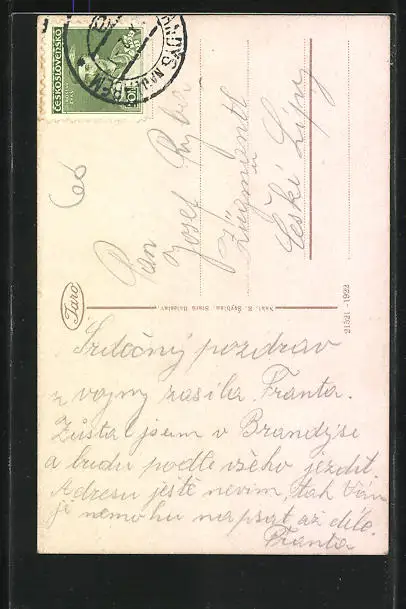 ČESKOSLOVENSKO
50
BRANDÝS N. L.
60
Pan
Josef Ryber
České Lípy
Taro
Nakl. K. Skybina, Stará Boleslav
21521 - 1922
Srdečný pozdrav
z vojny zasílá Franta.
Zůstal jsem v Brandýse
a budu podle všeho jezdit
Adresu ještě nevím, tak Vám
je nemohu napsat až díle.
Franta